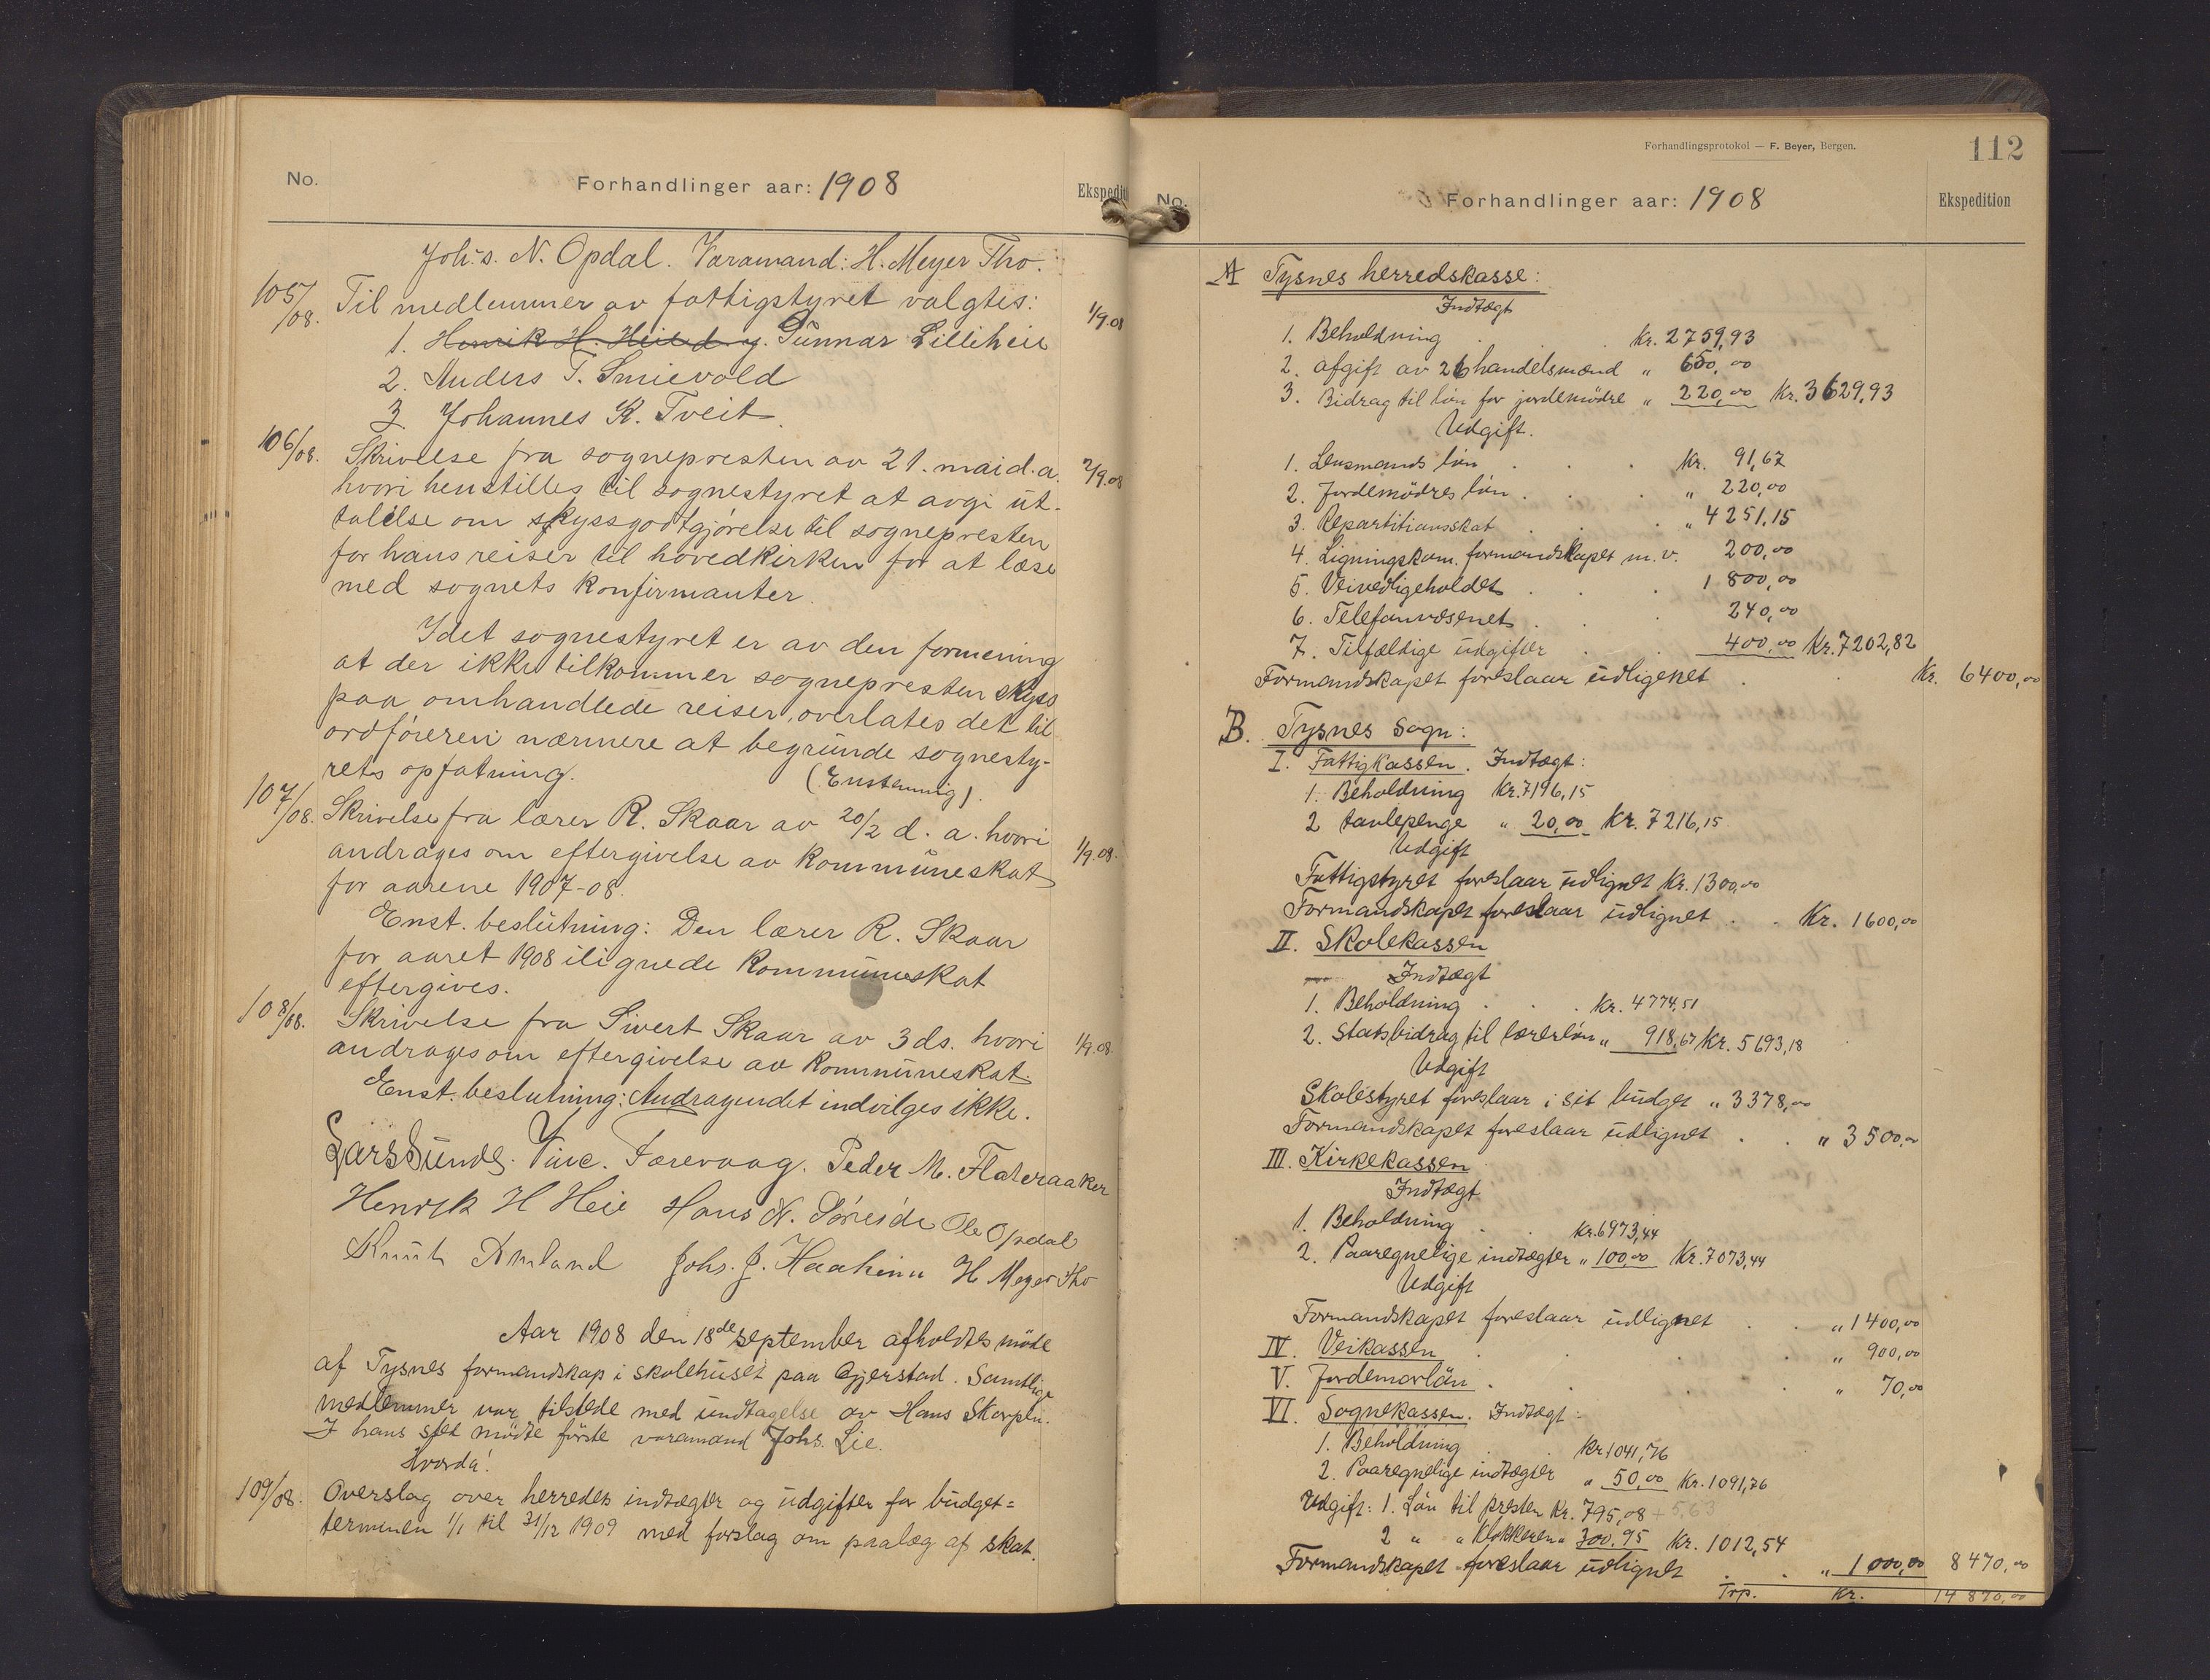 No.
Forhandlinger aar: 1908
Ekspedit
Joh's. N. Opdal. Varamand: H. Meyer Tho.
105/08. Til medlemmer av fattigstyret valgtes: 1/9.08
1. Henrik H. Heie d. y. Gunnar Lilleheie
2. Anders T. Smievold
3 Johannes K. Tveit.
106/08. Skrivelse fra sognepresten av 21. mai d. a. 2/9.08
hvori henstilles til sognestyret at avgi ut-
talelse om skyssgodtgjørelse til sognepresten
for hans reiser til hovedkirken for at læse
med sognets konfirmanter.
Idet sognestyret er av den formening
at der ikke tilkommer sognepresten skyss
paa omhandlede reiser, overlates det til
ordføreren nærmere at begrunde sognesty-
rets opfatning.
(Enstemmig).
107/08. Skrivelse fra lærer R. Skaar av 20/2 d. a. hvori
andrages om eftergivelse av kommuneskat 1/9.08.
for aarene 1907-08.
Enst. beslutning: Den lærer R. Skaar
for aaret 1908 ilignede kommuneskat
eftergives.
108/08. Skrivelse fra Sivert Skaar av 3 ds. hvori 1/9.08.
andrages om eftergivelse av kommuneskat.
Enst. beslutning: Andragendet indvilges ikke.
Lars Sunde. Vinc. Færevaag. Peder M. Flateraaker
Henrik H Heie Hans N. Søreide Ole Opdal
Knut Amland Johs. J. Haaheim H Meyer Tho
Aar 1908 den 18de september afholdtes møde
af Tysnes formandskap i skolehuset paa Gjerstad. Samtlige
medlemmer var tilstede med undtagelse av Hans Skorpen.
I hans sted mødte første varamand Johs. Lie.
Hvorda:
109/08. Overslag over herredets indtægter og udgifter for budget=
terminen 1/1 til 31/12 1909 med forslag om paalæg af skat.
Forhandlingsprotokol — F. Beyer, Bergen.
112
No.
Forhandlinger aar: 1908
Ekspedition
A Tysnes herredskasse:
Indtægt
1. Beholdning . . Kr. 2759,93
2. afgift av 26 handelsmænd " 650,00
3. Bidrag til løn for jordemødre " 220,00 Kr. 3629,93
Udgift.
1. Lensmands løn . . . Kr. 91,67
2. Jordemødres løn . . . " 220,00
3. Repartitionsskat . . " 4251.15
4. Ligningskom. formandskapet m. v. 200,00
5. Veivedligeholdet . . . 1 800,00
6. Telefonvæsenet . . 240,00
7. Tilfældige udgifter . . 400,00 Kr. 7202,82
Formandskapet foreslaar udlignet . . Kr. 6400,00
B. Tysnes Sogn:
I. Fattigkassen. Indtægt:
1. Beholdning Kr. 7196,15
2 tavlepenge " 20,00 Kr. 7216,15
Udgift
Fattigstyret foreslaar udlignet Kr. 1300,00
Formandskapet foreslaar udlignet . . Kr. 1600,00
II. Skolekassen
Indtægt
1. Beholdning . . Kr. 4774,51
2. Statsbidrag til lærerløn " 918,67 Kr. 5693,18
Udgift
Skolestyret foreslaar i sit budget " 3378,00
Formandskapet foreslaar udlignet . . " 3500,00
III. Kirkekassen
Indtægt
1. Beholdning . . Kr. 6973,44
2. Paaregnelige indtægter " 100,00 Kr. 7073,44
Udgift
Formandskapet foreslaar udlignet . . " 1400,00
IV. Veikassen . . . " 900,00
V. Jordemorløn . . . " 70,00
VI. Sognekassen. Indtægt:
1. Beholdning . . Kr. 1041,76
2. Paaregnelige indtægter " 50,00 Kr. 1091,76
Udgift: 1. Løn til presten Kr. 795,08 + 5,63
2 " " Klokkeren " 300,95 Kr. 1012,54
Formandskapet foreslaar udlignet . . " 1 000,00 8470,00
Trp. Kr. 14 870,00